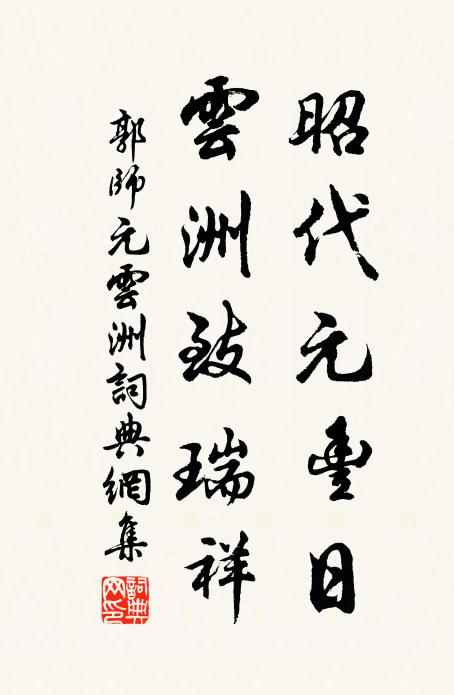 昭代元豐日
雲洲致瑞祥
郭師元雲洲詞典網集
詞典網印